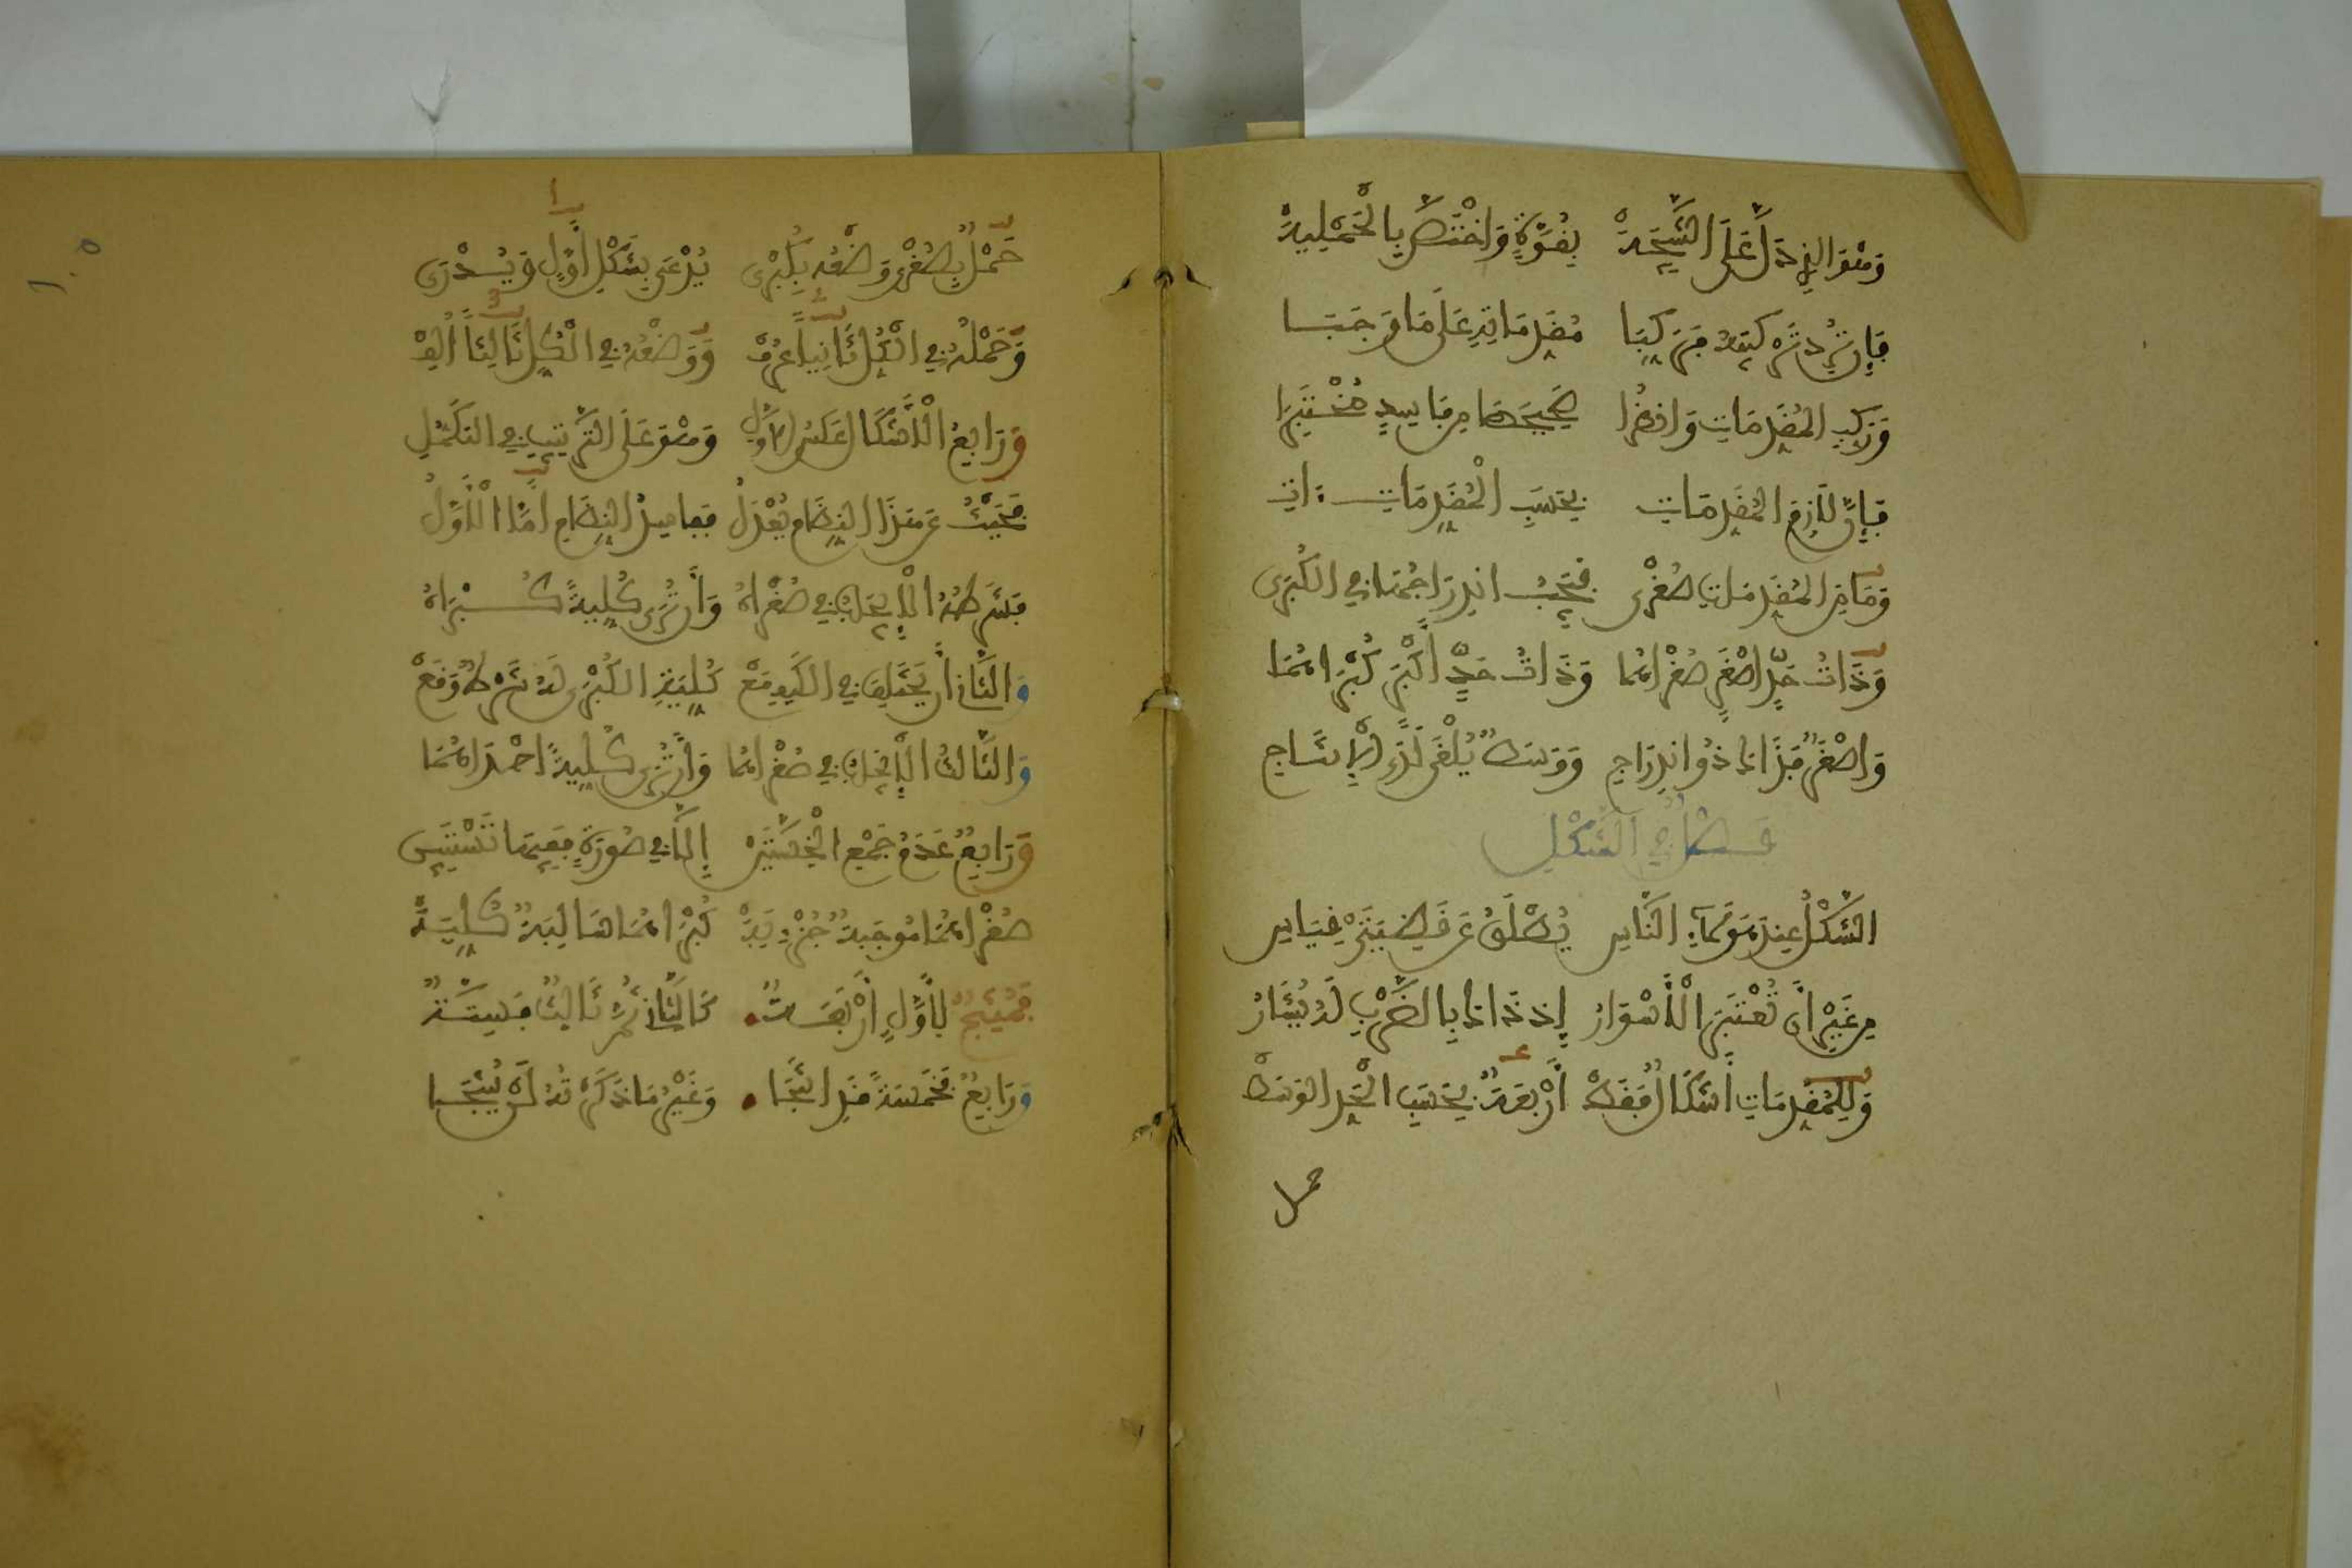 وَهْوَ الذِي دَلَّ عَلَى النَّتِيجَةْ بِقُوَّةٍ وَاخْتَصَّ بِالْحَمْلِيَّةْ
فَإِنْ تُرِدْ تَرْكِيبَهُ فَرَكِّبَا مُقَدِّمَاتِهِ عَلَى مَا وَجَبَا
وَرَتِّبِ الْمُقَدِّمَاتِ وَانْظُرَا صَحِيحَهَا مِن فَاسِدٍ مُخْتَبِرَا
فَإِنَّ لَازِمَ الْمُقَدِّمَاتِ بِحَسَبِ الْمُقَدِّمَاتِ ءَاتِ
وَمَا مِنَ الْمُقَدِّمَاتِ صُغْرَى فَيَجِبُ انْدِرَاجُهَا فِي الْكُبْرَى
وَذَاتُ حَدٍّ أَصْغَرٍ صُغْرَاهُمَا وَذَاتُ حَدٍّ أَكْبَرٍ كُبْرَاهُمَا
وَأَصْغَرٌ فَذَاكَ ذُو انْدِرَاجِ وَوَسَطٌ يُلْغَى لَدَى الْإِنْتَاجِ
فَصْلٌ فِي الشَّكْلِ
الشَّكْلُ عِنْدَ هَؤُلَاءِ النَّاسِ يُطْلَقُ عَنْ قَضِيَّتَيْ قِيَاسِ
مِن غَيْرِ أَن تُعْتَبَرَ الْأَسْوَارُ إِذْ ذَاكَ بِالضَّرْبِ لَهُ يُشَارُ
وَلِلْمُقَدِّمَاتِ أَشْكَالٌ فَقَطْ أَرْبَعَةٌ بِحَسَبِ الْحَدِّ الْوَسَطْ
حمل
١٠٥
حَمْلٌ بِصُغْرَى وَضْعُهُ بِكُبْرَى يُدْعَى بِشَكْلٍ أَوَّلٍ وَيُدْرَى
وَحَمْلُهُ فِي الْكُلِّ ثَانِيًا عُرِفْ وَوَضْعُهُ فِي الْكُلِّ ثَالِثًا أُلِفْ
وَرَابِعُ الْأَشْكَالِ عَكْسُ الْأَوَّلِ وَهْوَ عَلَى التَّرْتِيبِ فِي التَّكَمُّلِ
فَحَيْثُ عَن هَذَا النِّظَامِ يُعْدَلُ فَفَاسِدُ النِّظَامِ أَمَّا الْأَوَّلُ
فَشَرْطُهُ الْإِيجَابُ فِي صُغْرَاهُ وَأَن تُرَى كُلِّيَّةً كُبْرَاهُ
وَالثَّانِ أَن يَخْتَلِفَا فِي الْكَيْفِ مَعْ كُلِّيَّةِ الْكُبْرَى لَهُ شَرْطٌ وَقَعْ
وَالثَّالِثُ الْإِيجَابُ فِي صُغْرَاهُمَا وَأَن تُرَى كُلِّيَّةً إِحْدَاهُمَا
وَرَابِعٌ عَدَمُ جَمْعِ الْخِسَّتَيْنْ إِلَّا فِي صُورَةٍ فَفِيهَا تَسْتَبِينْ
صُغْرَاهُمَا مُوجَبَةٌ جُزْءِيَّةْ كُبْرَاهُمَا سَالِبَةٌ كُلِّيَّةْ
فَمُنْتِجٌ لِأَوَّلٍ أَرْبَعَةٌ كَالثَّانِ ثُمَّ ثَالِثٌ فَسِتَّةٌ
وَرَابِعٌ بِخَمْسَةٍ قَدْ أَنْتَجَا وَغَيْرُ مَا ذَكَرْتُهُ لَن يُنْتِجَا
1
2
3
ع